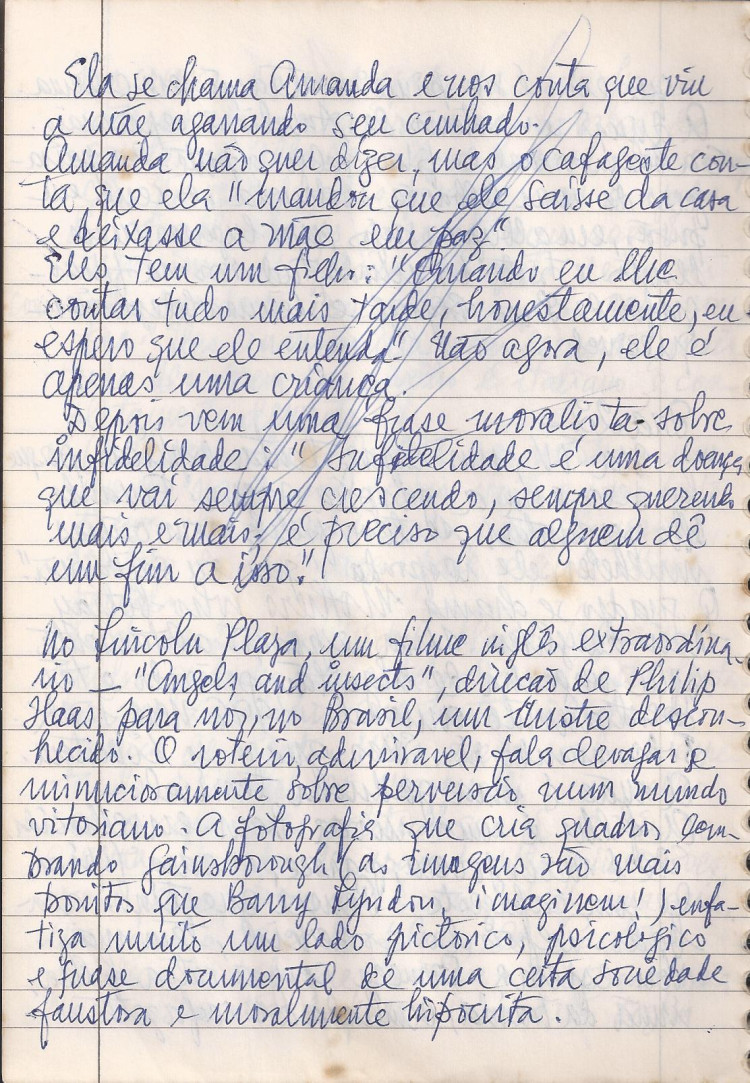 Ela se chama Amanda e nos conta que viu
a mãe agarrando seu cunhado.
Amanda não quer dizer, mas o cafageste con-
ta que ela "mandou que ele saisse da casa
e deixasse a mãe em paz"
Eles tem um filho: "Quando eu lhe
contar tudo mais tarde, honestamente, eu
espero que ele entenda" Não agora, ele é
apenas uma criança.
Depois vem uma frase moralista sobre
infidelidade: "Infidelidade é uma doença
que vai sempre crescendo, sempre querendo
mais e mais; é preciso que alguem dê
um fim a isso."
No Lincoln Plaza, um filme inglês extraordiná-
rio — "Angels and insects", direcão de Philip
Haas, para nós, no Brasil, um ilustre descon-
hecido. O roteiro, admiravel, fala devagar e
minuciosamente sobre perversão num mundo
vitoriano. A fotografia que cria quadros lem-
brando Gainsborough (as imagens são mais
bonitas que Barry Lyndon, imaginem!) enfa-
tiza muito um lado pictórico, psicológico
e quase documental de uma certa sociedade
faustosa e moralmente hipócrita.